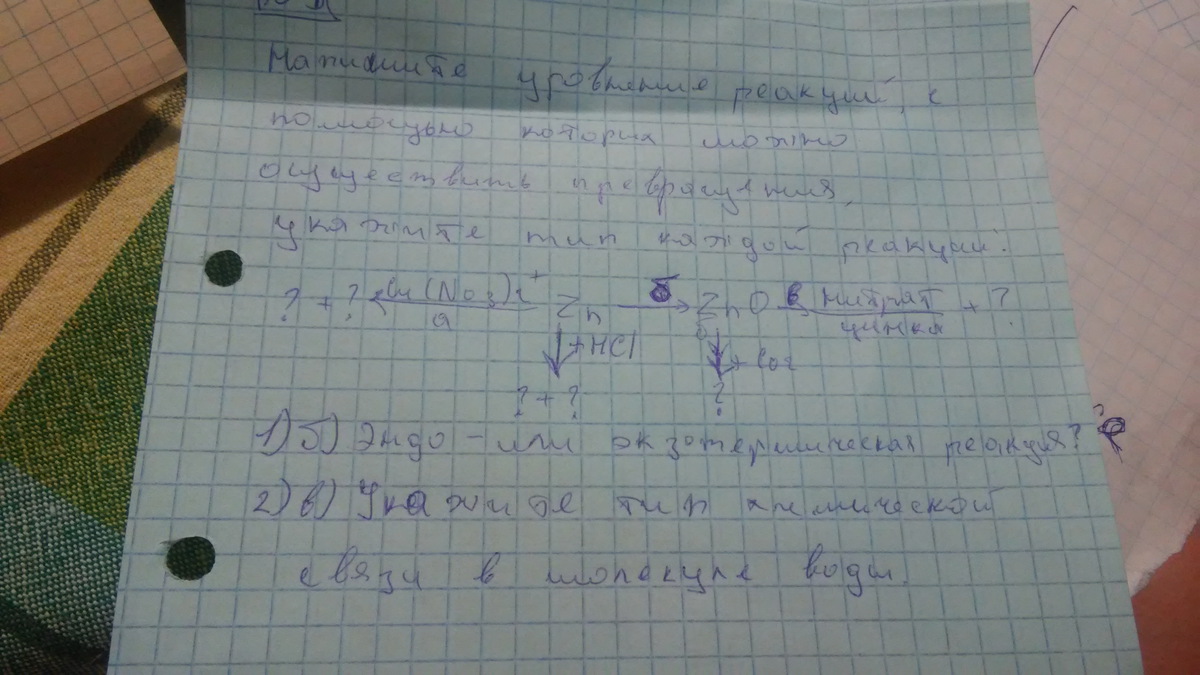 Напишите уровнение реакций, с
помощью которых можно
осуществить превращения,
укажите тип каждой реакции:
? + ? Cu(NO3)2 + Zn б ZnO в нитрат + ?
а цинка
+HCl + CO2
? + ? ?
1) б) Эндо - или экзотермическая реакция?
2) в) Укажите тип химической
связи в молекуле воды.